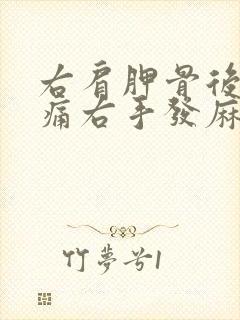 右肩胛骨後
痛右手發麻
竹夢兮1